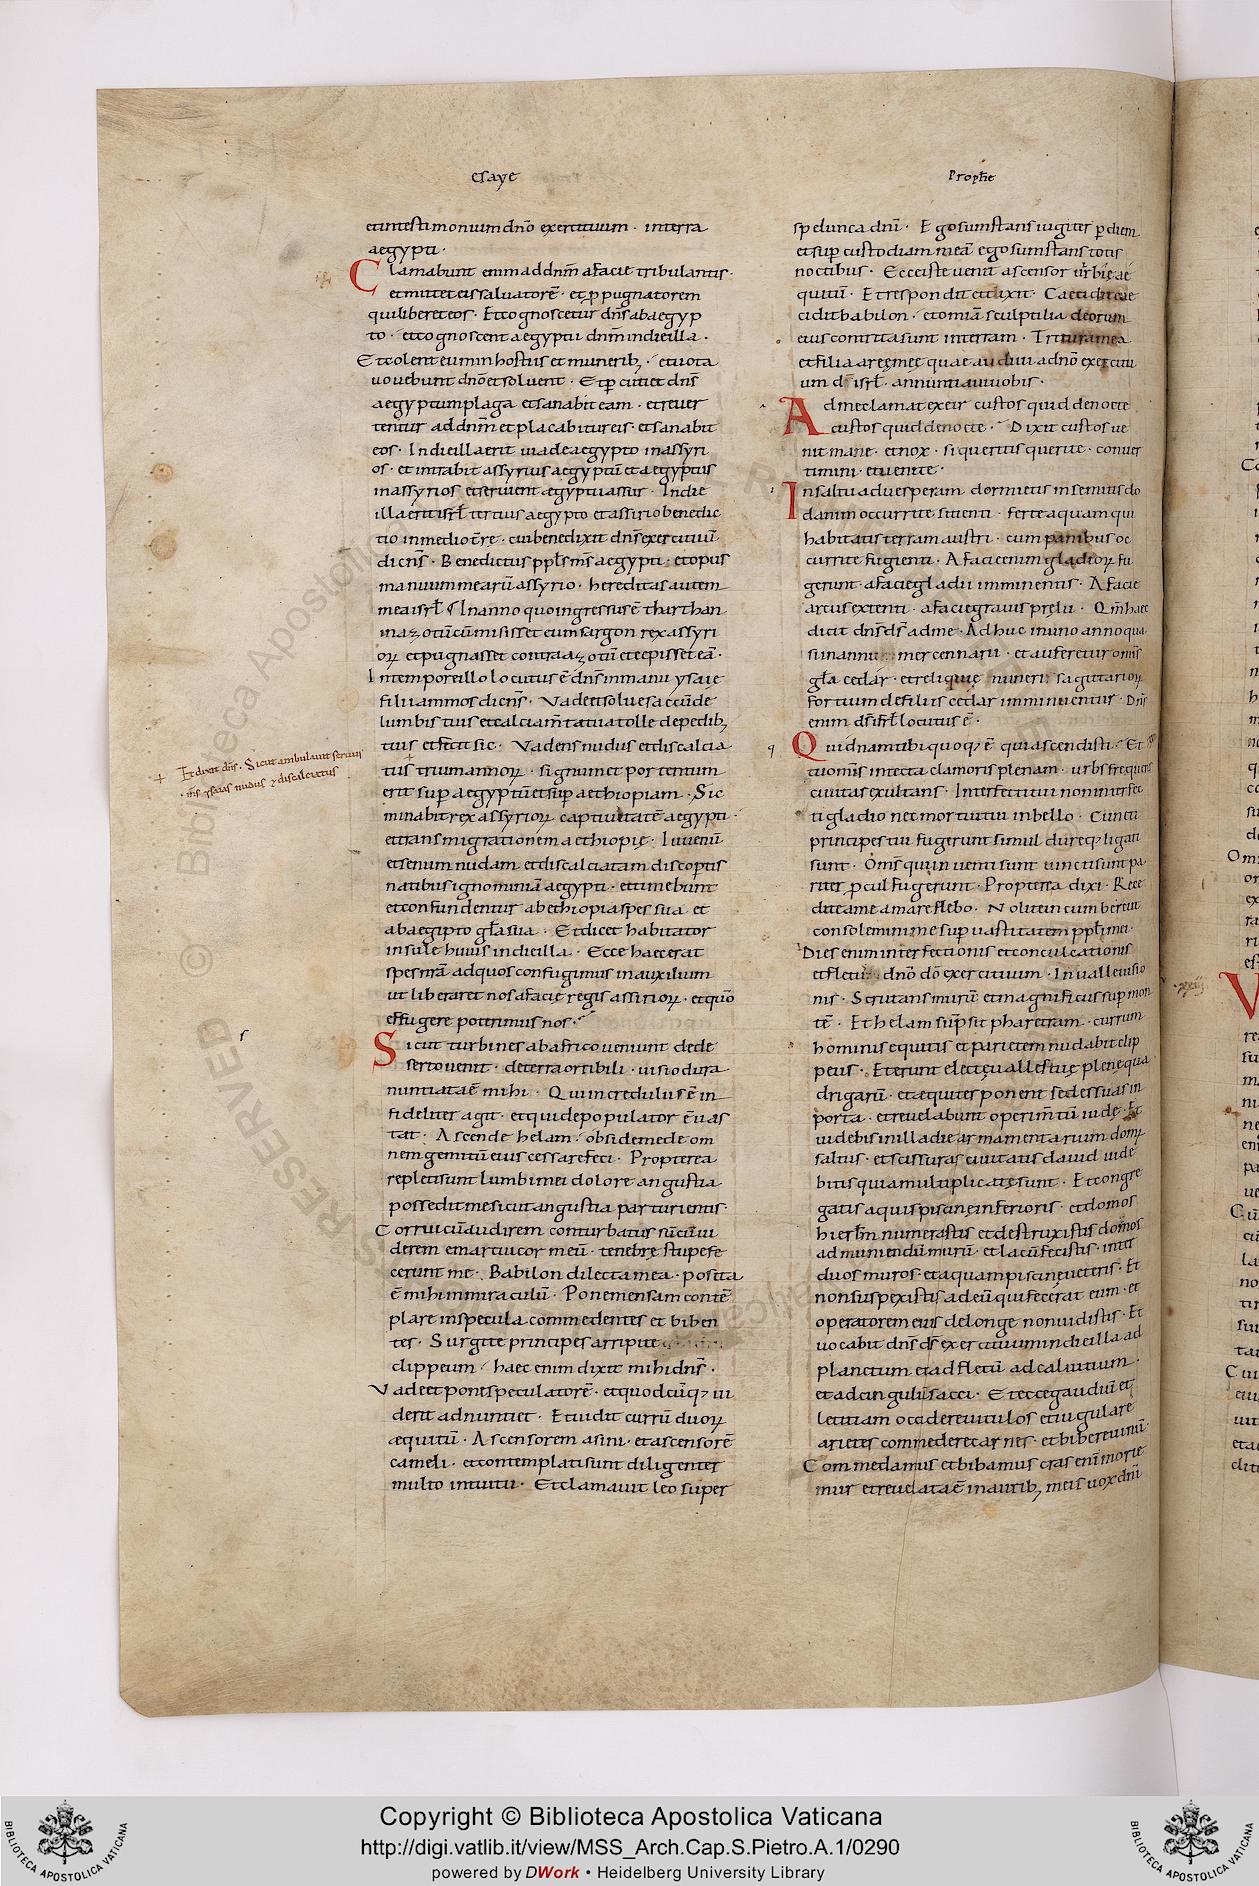 esaye
Prophe
et in testimonium dnō exercituum · in terra
aegypti ·
Clamabunt enim ad dnm̄ a facie tribulantis ·
et mittet eis saluatorē · et ꝓpugnatorem
qui liberet eos · Et cognoscetur dns̄ ab aegyp
to · et cognoscent aegyptii dnm̄ in die illa ·
Et colent eum in hostiis et munerib; · et uota
uouebunt dnō et soluent · Et ꝑcutiet dns̄
aegyptum plaga et sanabit eam · et reuer
tentur ad dnm̄ et placabitur eis · et sanabit
eos · In die illa erit uia de aegypto in assyri
os · et intrabit assyrius aegyptū et aegyptius
in assyrios et seruient aegyptii assur · In die
illa erit isrl̄ tertius aegypto et assirio benedic
tio in medio tr̄re · cui benedixit dns̄ exercituū
dicens̄ · Benedictus ppls̄ ms̄ aegypti · et opus
manuum mearū assyrio · hereditas autem
mea isrl̄ In anno quo ingressus ē tharthan
in azotū cū misisset eum sargon rex assyri
oꝝ et pugnasset contra azotū et cepisset eā ·
In tempore illo locutus ē dns̄ in manu ysaię
filii ammos dicens̄ · Vade et solue saccū de
lumbis tuis et calciam̄ta tua tolle de pedib;
tuis et fecit sic · Vadens nudus et discalcia
tus trium annoꝝ · signum et portentum
erit suꝑ aegyptū et suꝑ aethiopiam · Sic
minabit rex assyrioꝝ captiuitatē aegypti ·
et transmigrationem aethiopię · Iuuenū
et senum nudam et discalciatam discoꝑtis
natibus ignominiā aegypti · et timebunt
et confundentur ab ethiopia spe sua et
ab aegipto gl̄a sua · Et dicet habitator
insule huius in die illa · Ecce haec erat
spes nr̄a ad quos confugimus in auxilium
ut liberaret nos a facie regis assirioꝝ · et quō
effugere poterimus nos ·
Sicut turbines ab africo ueniunt de de
serto uenit · de terra orribili · uisio dura
nuntiata ē mihi · Qui incredulus ē in
fideliter agit · et qui depopulator ē uas
tat · Ascende helam · obside mede om
nem gemitū eius cessare feci · Propterea
repleti sunt lumbi mei dolore angustia
possedit me sicut angustia parturientis ·
Corrui cū audirem conturbatus sū cū ui
derem emarcuit cor meū · tenebrę stupefe
cerunt me · Babilon dilecta mea · posita
ē mihi in miraculū · Pone mensam contē
plare in specula commedentes et biben
tes · Surgite principes arripite
clippeum · haec enim dixit mihi dns̄ ·
Vade et pone speculatorē · et quodcūq; ui
derit adnuntiet · Et uidit currū duoꝝ
æquitū · Ascensorem asini · et ascensorē
cameli · et contemplati sunt diligenter
multo intuitu · Et clamauit leo super
spelunca dnī · Ego sum stans iugiter ꝑ diem
et suꝑ custodiam meā ego sum stans totis
noctibus · Ecce iste uenit ascensor uir bigae
quitū · Et respondit et dixit · Caecidit cae
cidit babilon · et om̄ia sculptilia deorum
eius contrita sunt in terram · Tritura mea
et filia areę meę quae audiui a dnō exercitu
um ds̄ isrl̄ · annuntiaui uobis ·
Ad me clamat ex seir custos quid de nocte
custos quid de nocte · Dixit custos ue
nit mane · et nox · si queritis querite · conuer
timini · et uenite ·
In saltu ad uesperam dormietis in semitis do
danim occurrite sitienti · ferte aquam qui
habitatis terram austri · cum panibus oc
currite fugienti · A facie enim gladioꝝ fu
gerunt · a facie gladii imminentis · A facie
arcus extenti · a facie grauis pręlii · Qm̄ haec
dicit dns̄ ds̄ ad me · Adhuc in uno anno qua
si in anno mercennarii · et auferetur omīs
gl̄a cedar · et reliquię numeri sagittarioꝝ
fortium de filiis cedar imminuentur · Dns̄
enim ds̄ isrl̄ locutus ē ·
Quidnam tibi quoq; ē quia ascendisti · Et
tu omīs in tecta clamoris plenam · urbs frequens
ciuitas exultans · Interfecti tui non interfec
ti gladio nec mortui tui in bello · Cuncti
principes tui fugerunt simul dureq; ligati
sunt · Omīs qui inuenti sunt uincti sunt pa
riter ꝓcul fugerunt · Propterea dixi · Rece
dite a me amare flebo · Nolite incumbere ut
consolemini me suꝑ uastitatem ppl̄i mei ·
Dies enim interfectionis et conculcationis
et fletuum dnō dō exercituum · In ualle uisio
nis · Scrutans murū et magnificus suꝑ mon
tē · Et helam sūpsit pharetram · currum
hominis equitis et parietem nudabit clip
peus · Et erunt electę ualles tuę plenę qua
drigarū · et aequites ponent sedes suas in
porta · et reuelabunt operim̄tū iudę · Et
uidebis in illa die armamentarium domꝝ
saltus · et scissuras ciuitatis dauid uide
bitis quia multiplicatę sunt · Et congre
gatis aquis piscinę inferioris · et domos
hierl̄m numerastis et destruxistis domos
ad muniendū murū · et lacū fecistis · inter
duos muros · et aquam piscinę ueteris · Et
non suspexistis ad eū qui fecerat eum · et
operatorem eius de longe non uidistis · Et
uocabit dns̄ ds̄ exercituum in die illa ad
planctum et ad fletū ad caluitium ·
et ad cingulū sacci · Et ecce gaudiū et
letitiam occidere uitulos et iugulare
arietes commedere carnes · et bibere uinū ·
Commedamus et bibamus cras enī morie
mur et reuelata ē in aurib; meis uox dnī
Et dixit dns̄ · Sicut ambulauit seruus
ms̄ ysaias nudus et discalciatus
Copyright © Biblioteca Apostolica Vaticana
http://digi.vatlib.it/view/MSS_Arch.Cap.S.Pietro.A.1/0290
powered by DWork • Heidelberg University Library